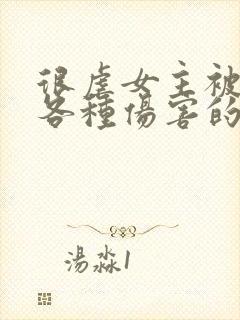 很虐女主被
各種傷害的
湯淼1